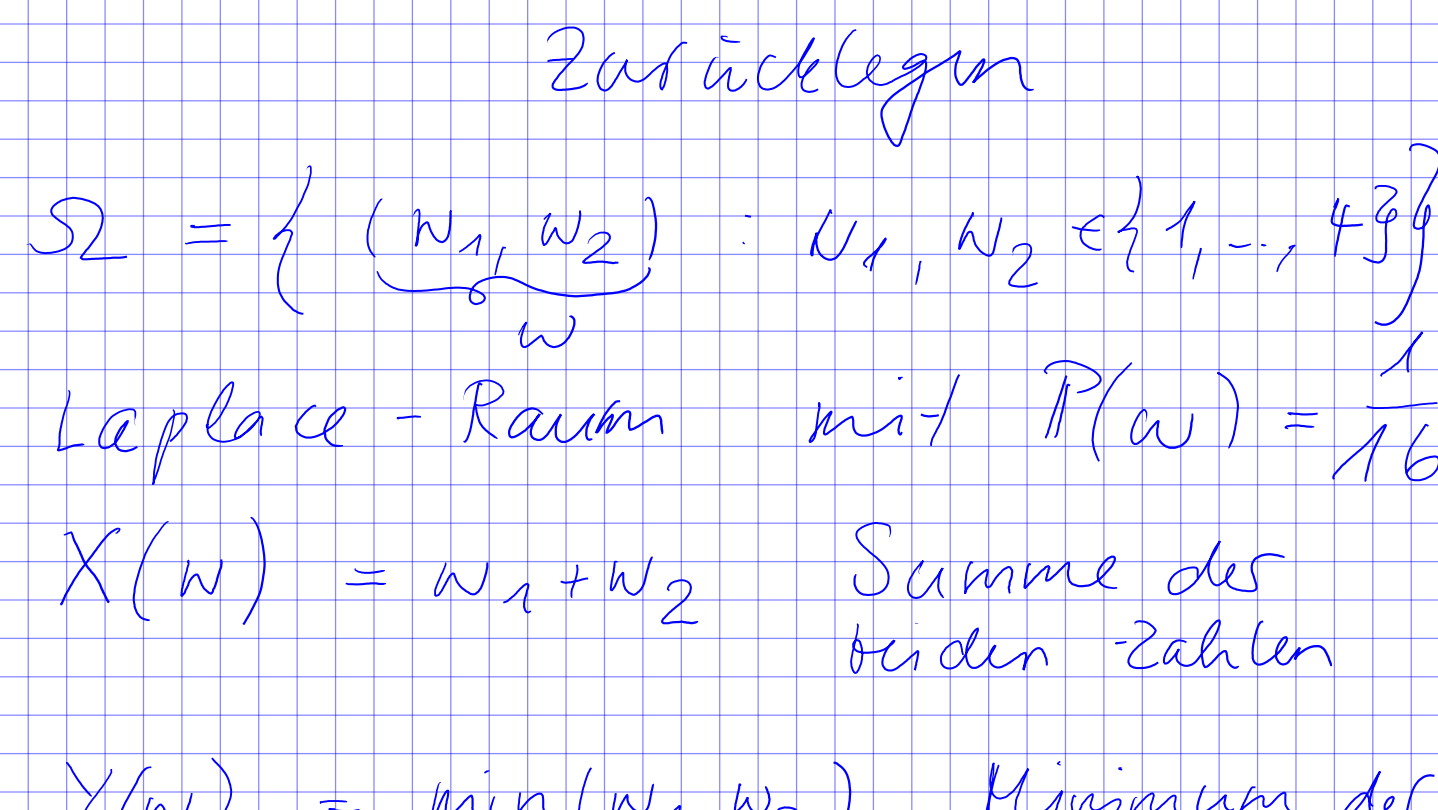 Zurücklegen
Ω = { (w₁, w₂) : w₁, w₂ ∈ {1, ..., 4}}
w
Laplace-Raum mit ℙ(w) = 1/16
X(w) = w₁ + w₂ Summe der
beiden Zahlen
Y(w) = min(w₁, w₂) Minimum der